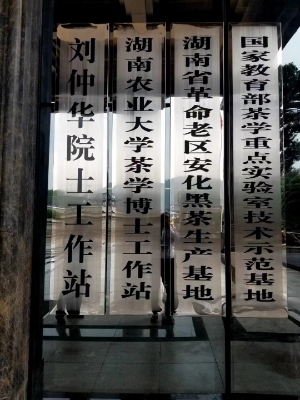 国家教育部茶学重点实验室技术示范基地
湖南省革命老区安化黑茶生产基地
湖南农业大学茶学博士工作站
刘仲华院士工作站